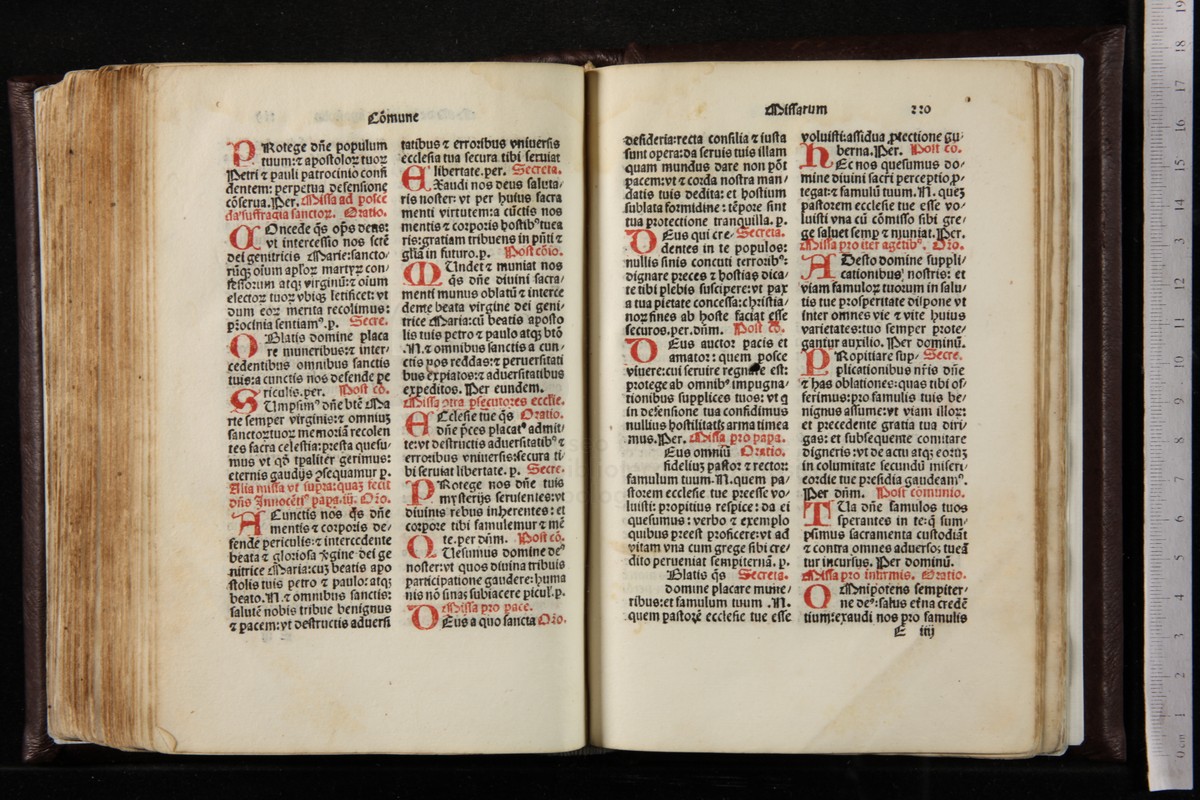 Cōmune
PRotege dn̄e populum
tuum: ⁊ apostoloꝝ tuoꝝ
Petri ⁊ pauli patrocinio confi
dentem: perpetua defensione
cōserua. Per. Missa ad posce
da suffragia sanctoꝝ. Oratio.
COncede q̄s op̄s deus:
vt intercessio nos sctē
dei genitricis Marie: sancto-
rūq; oīum aplōꝝ martyꝝ con-
fessorum atq; virginū: ⁊ oīum
electoꝝ tuoꝝ vbiq; letificet: vt
dum eoꝝ merita recolimus:
pr̄ocinia sentiamꝰ. p. Secre.
OBlatis domine placa
re muneribus: ⁊ inter-
cedentibus omnibus sanctis
tuis: a cunctis nos defende pe
riculis. per. Post cō.
SUmpsimꝰ dn̄e btē Ma
rie semper virginis: ⁊ omniuꝫ
sanctoꝝ tuoꝝ memoriā recolen
tes sacra celestia: presta quesu-
mus vt qd̄ tp̄aliter gerimus:
eternis gaudijs ꝯsequamur p.
Alia missa vt supra: quaꝫ fecit
dn̄s Innocētiꝰ papa .iii. Oro.
ACunctis nos q̄s dn̄e
mentis ⁊ corporis de-
fende periculis: ⁊ intercedente
beata ⁊ gloriosa v̄gine dei ge
nitrice Maria: cuꝫ beatis apo
stolis tuis petro ⁊ paulo: atq;
beato .N. ⁊ omnibus sanctis:
salutē nobis tribue benignus
⁊ pacem: vt destructis aduersi
tatibus ⁊ erroribus vniuersis
ecclesia tua secura tibi seruiat
libertate. per. Secreta.
EXaudi nos deus saluta-
ris noster: vt per huius sacra
menti virtutem: a cūctis nos
mentis ⁊ corporis hostibꝰ tuea
ris: gratiam tribuens in pn̄ti ⁊
glīa in futuro. p. Post cōio.
MUndet ⁊ muniat nos
q̄s dn̄e diuini sacra-
menti munus oblatū ⁊ interce
deme beata virgine dei geni-
trice Maria: cū beatis aposto
lis tuis petro ⁊ paulo atq; btō
.N. ⁊ omnibus sanctis a cun-
ctis nos reddas: ⁊ peruersitati
bus expiatos: ⁊ aduersitatibus
expeditos. Per eundem.
Missa ꝯtra psecutores ecclie.
ECclesie tue q̄s Oratio.
dn̄e p̄ces placatꝰ admit-
te: vt destructis aduersitatibꝰ ⁊
erroribus vniuersis: secura ti-
bi seruiat libertate. p. Secre.
PRotege nos dn̄e tuis
mysterijs seruientes: vt
diuinis rebus inherentes: et
corpore tibi famulemur ⁊ mē
te. per dn̄m. Post cō.
QUesumus domine deꝰ
noster: vt quos diuina tribuis
participatione gaudere: huma
nis nō sinas subiacere picul̓. p.
Missa pro pace.
DEus a quo sancta Oro.
Missarum 220
desideria: recta consilia ⁊ iusta
sunt opera: da seruis tuis illam
quam mundus dare non pōt
pacem: vt ⁊ corda nostra man-
datis tuis dedita: et hostium
sublata formidine: tēpore sint
tua protectione tranquilla. p.
DEus qui cre- Secreta.
dentes in te populos:
nullis sinis concuti terroribꝰ:
dignare preces ⁊ hostias dica-
te tibi plebis suscipere: vt pax
a tua pietate concessa: christia-
noꝝ fines ab hoste faciat esse
securos. per. dn̄m. Post cō.
DEus auctor pacis et
amator: quem nosce
viuere: cui seruire regnare est:
protege ab omnibꝰ impugna-
tionibus supplices tuos: vt q
in defensione tua confidimus
nullius hostilitatis arma timea
mus. Per. Missa pro papa.
Eus omniū Oratio.
fidelius pastor ⁊ rector:
famulum tuum .N. quem pa-
storem ecclesie tue preesse vo-
luisti: propitius respice: da ei
quesumus: verbo ⁊ exemplo
quibus preest proficere: vt ad
vitam vna cum grege sibi cre-
dito perueniat sempiternā. p.
Blatis q̄s Secreta.
domine placare mune-
ribus: et famulum tuum .N.
quem pastorē ecclesie tue esse
voluisti: assidua ꝓtectione gu-
berna. Per. Post cō.
HEc nos quesumus do-
mine diuini sacr̄i perceptio p-
tegat: ⁊ famulū tuum .N. queꝫ
pastorem ecclesie tue esse vo-
luisti vna cū cōmisso sibi gre-
ge saluet semp ⁊ muniat. Per.
Missa pro iter agētibꝰ. Oro.
ADesto domine suppli-
cationibus nostris: et
viam famuloꝝ tuorum in salu-
tis tue prosperitate dispone vt
inter omnes vie ⁊ vite huius
varietates: tuo semper prote-
gantur auxilio. Per dominū.
PRopitiare sup- Secre.
plicationibus nr̄is dn̄e
⁊ has oblationes: quas tibi of-
ferimus: pro famulis tuis be-
nignus assume: vt viam illoꝝ:
et precedente gratia tua diri-
gas: et subsequente comitare
digneris: vt de actu atq; eoruꝫ
in columitate secundū miseri-
cordie tue presidia gaudeamꝰ.
Per dn̄m. Post comunio.
TUa dn̄e famulos tuos
sperantes in te: q̄ sum-
psimus sacramenta custodiāt
⁊ contra omnes aduersos tueā
tur incursus. Per dominū.
Missa pro infirmis. Oratio.
OMnipotens sempiter-
ne deꝰ: salus et̄na credē
tium: exaudi nos pro famulis
E iiij
0 cm 1 2 3 4 5 6 7 8 9 10 11 12 13 14 15 16 17 18 19